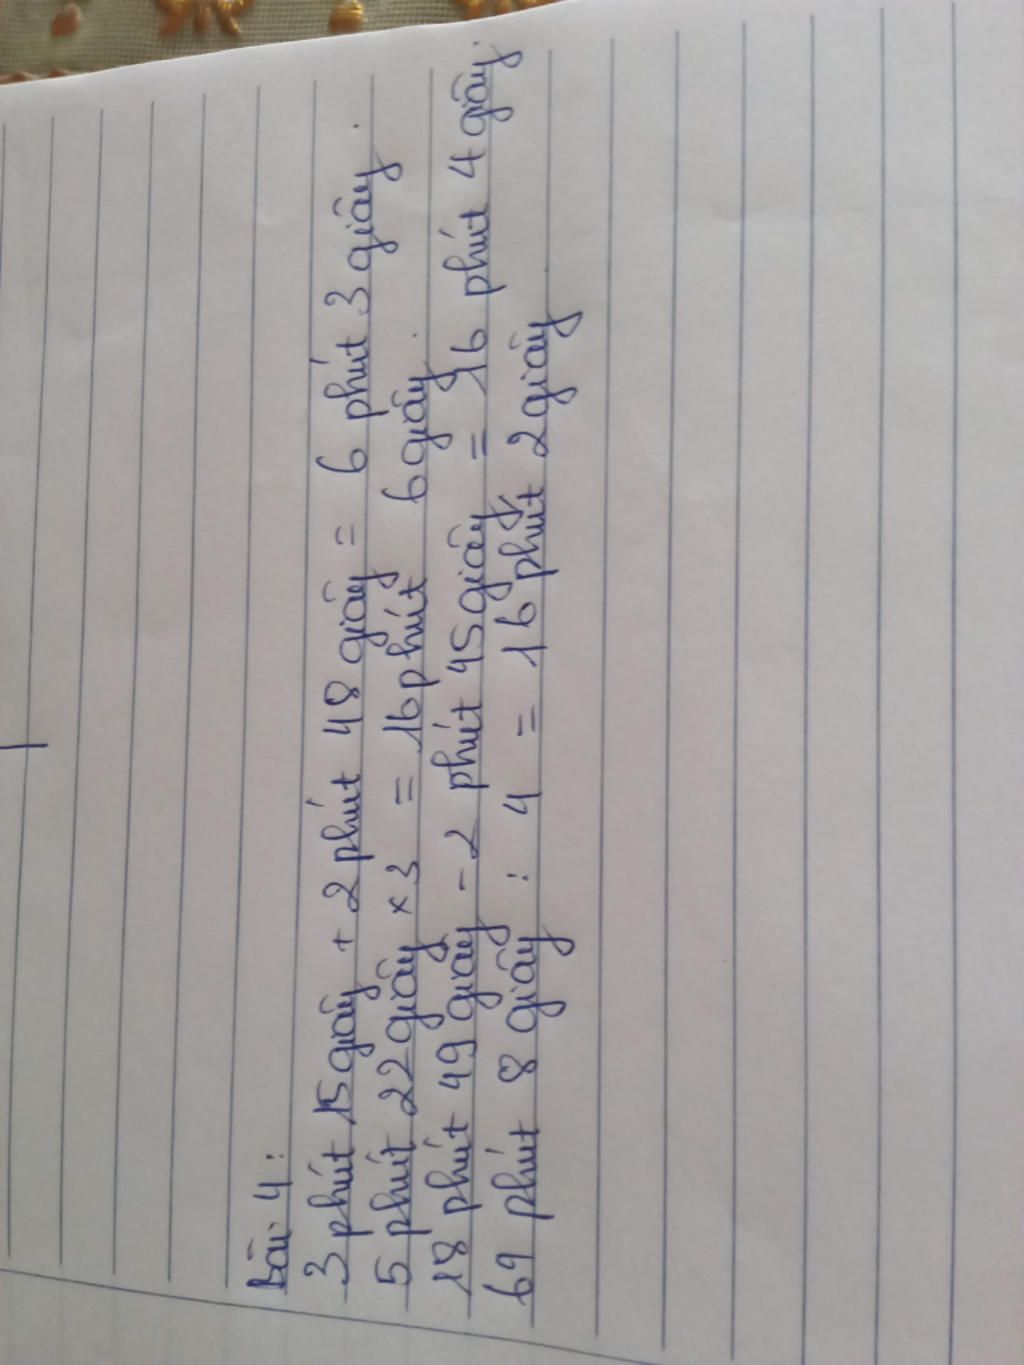 Bài 4:
3 phút 15 giây + 2 phút 48 giây = 6 phút 3 giây.
5 phút 22 giây × 3 = 16 phút 6 giây.
18 phút 49 giây - 2 phút 45 giây = 16 phút 4 giây.
69 phút 8 giây : 4 = 16 phút 2 giây